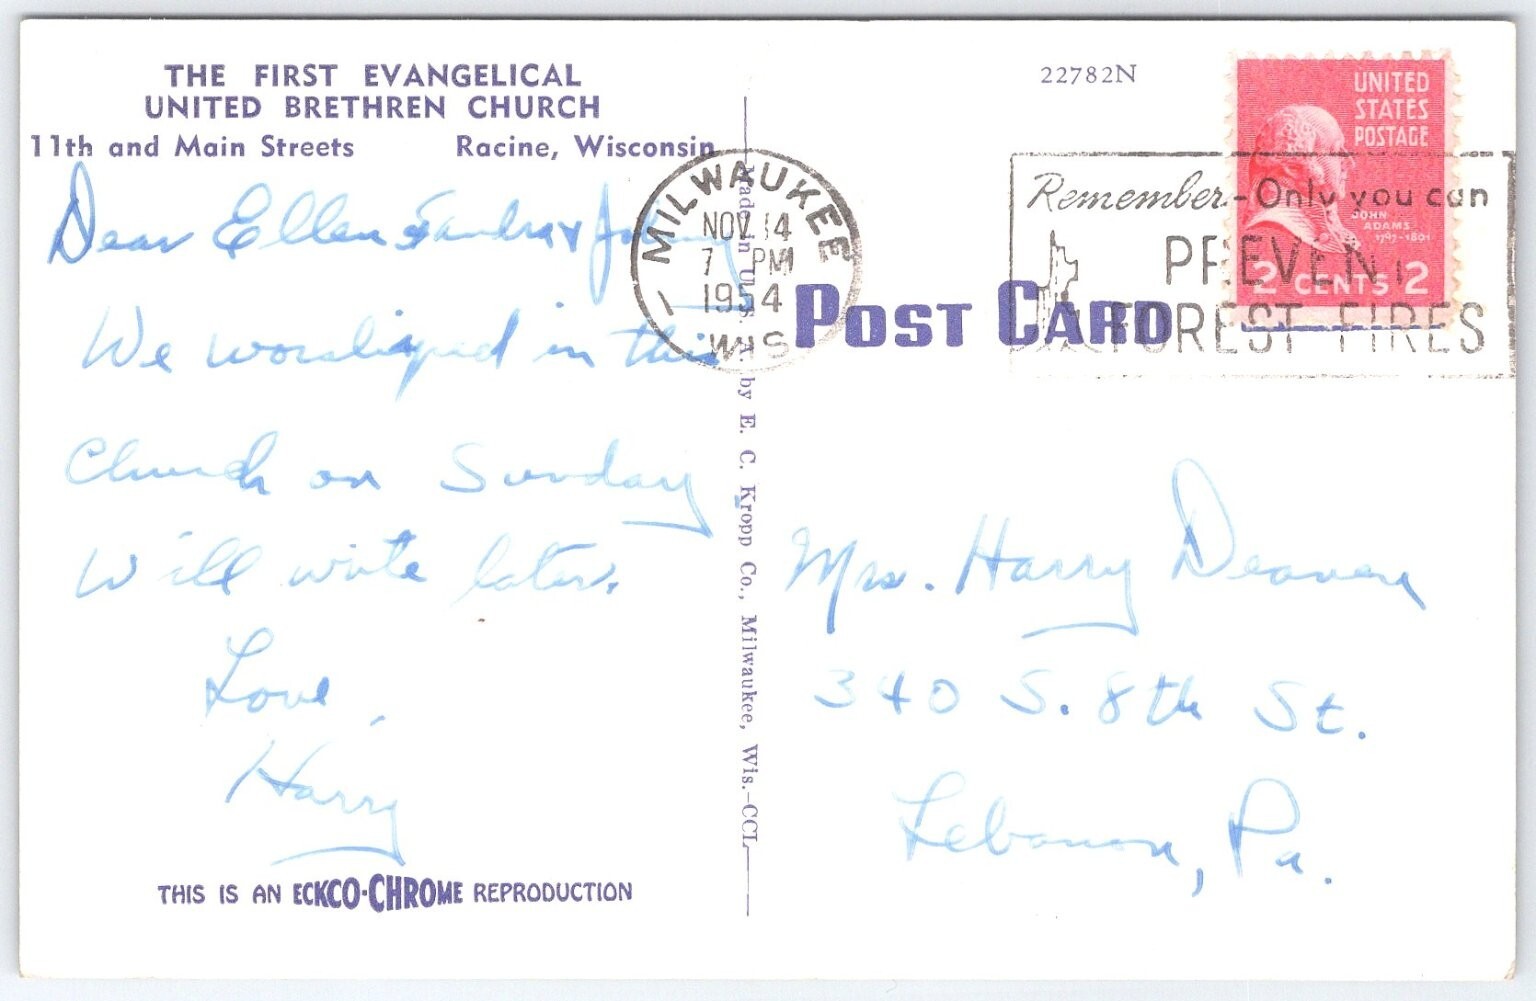 THE FIRST EVANGELICAL
UNITED BRETHREN CHURCH
11th and Main Streets Racine, Wisconsin
Dear Ellen Sandra &
We worshiped in this
Church on Sunday
Will write later.
Love,
Harry
THIS IS AN ECKCO-CHROME REPRODUCTION
Made in U.S.A. by E. C. Kropp Co., Milwaukee, Wis.-CCL
22782N
MILWAUKEE
NOV 14
7 PM
1954
WIS
UNITED
STATES
POSTAGE
JOHN
ADAMS
1797-1801
2 CENTS 2
Remember-Only you can
PREVENT
FOREST FIRES
POST CARD
Mrs. Harry Deaven
340 S. 8th St.
Lebanon, Pa.